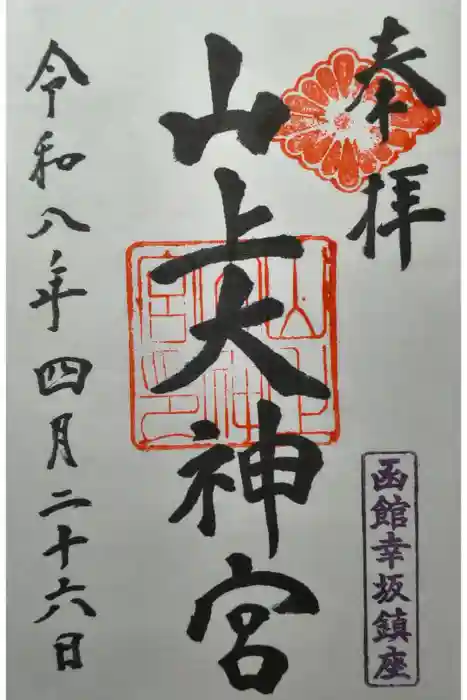 奉拝
函館幸坂鎮座
山上大神宮
令和八年四月二十六日